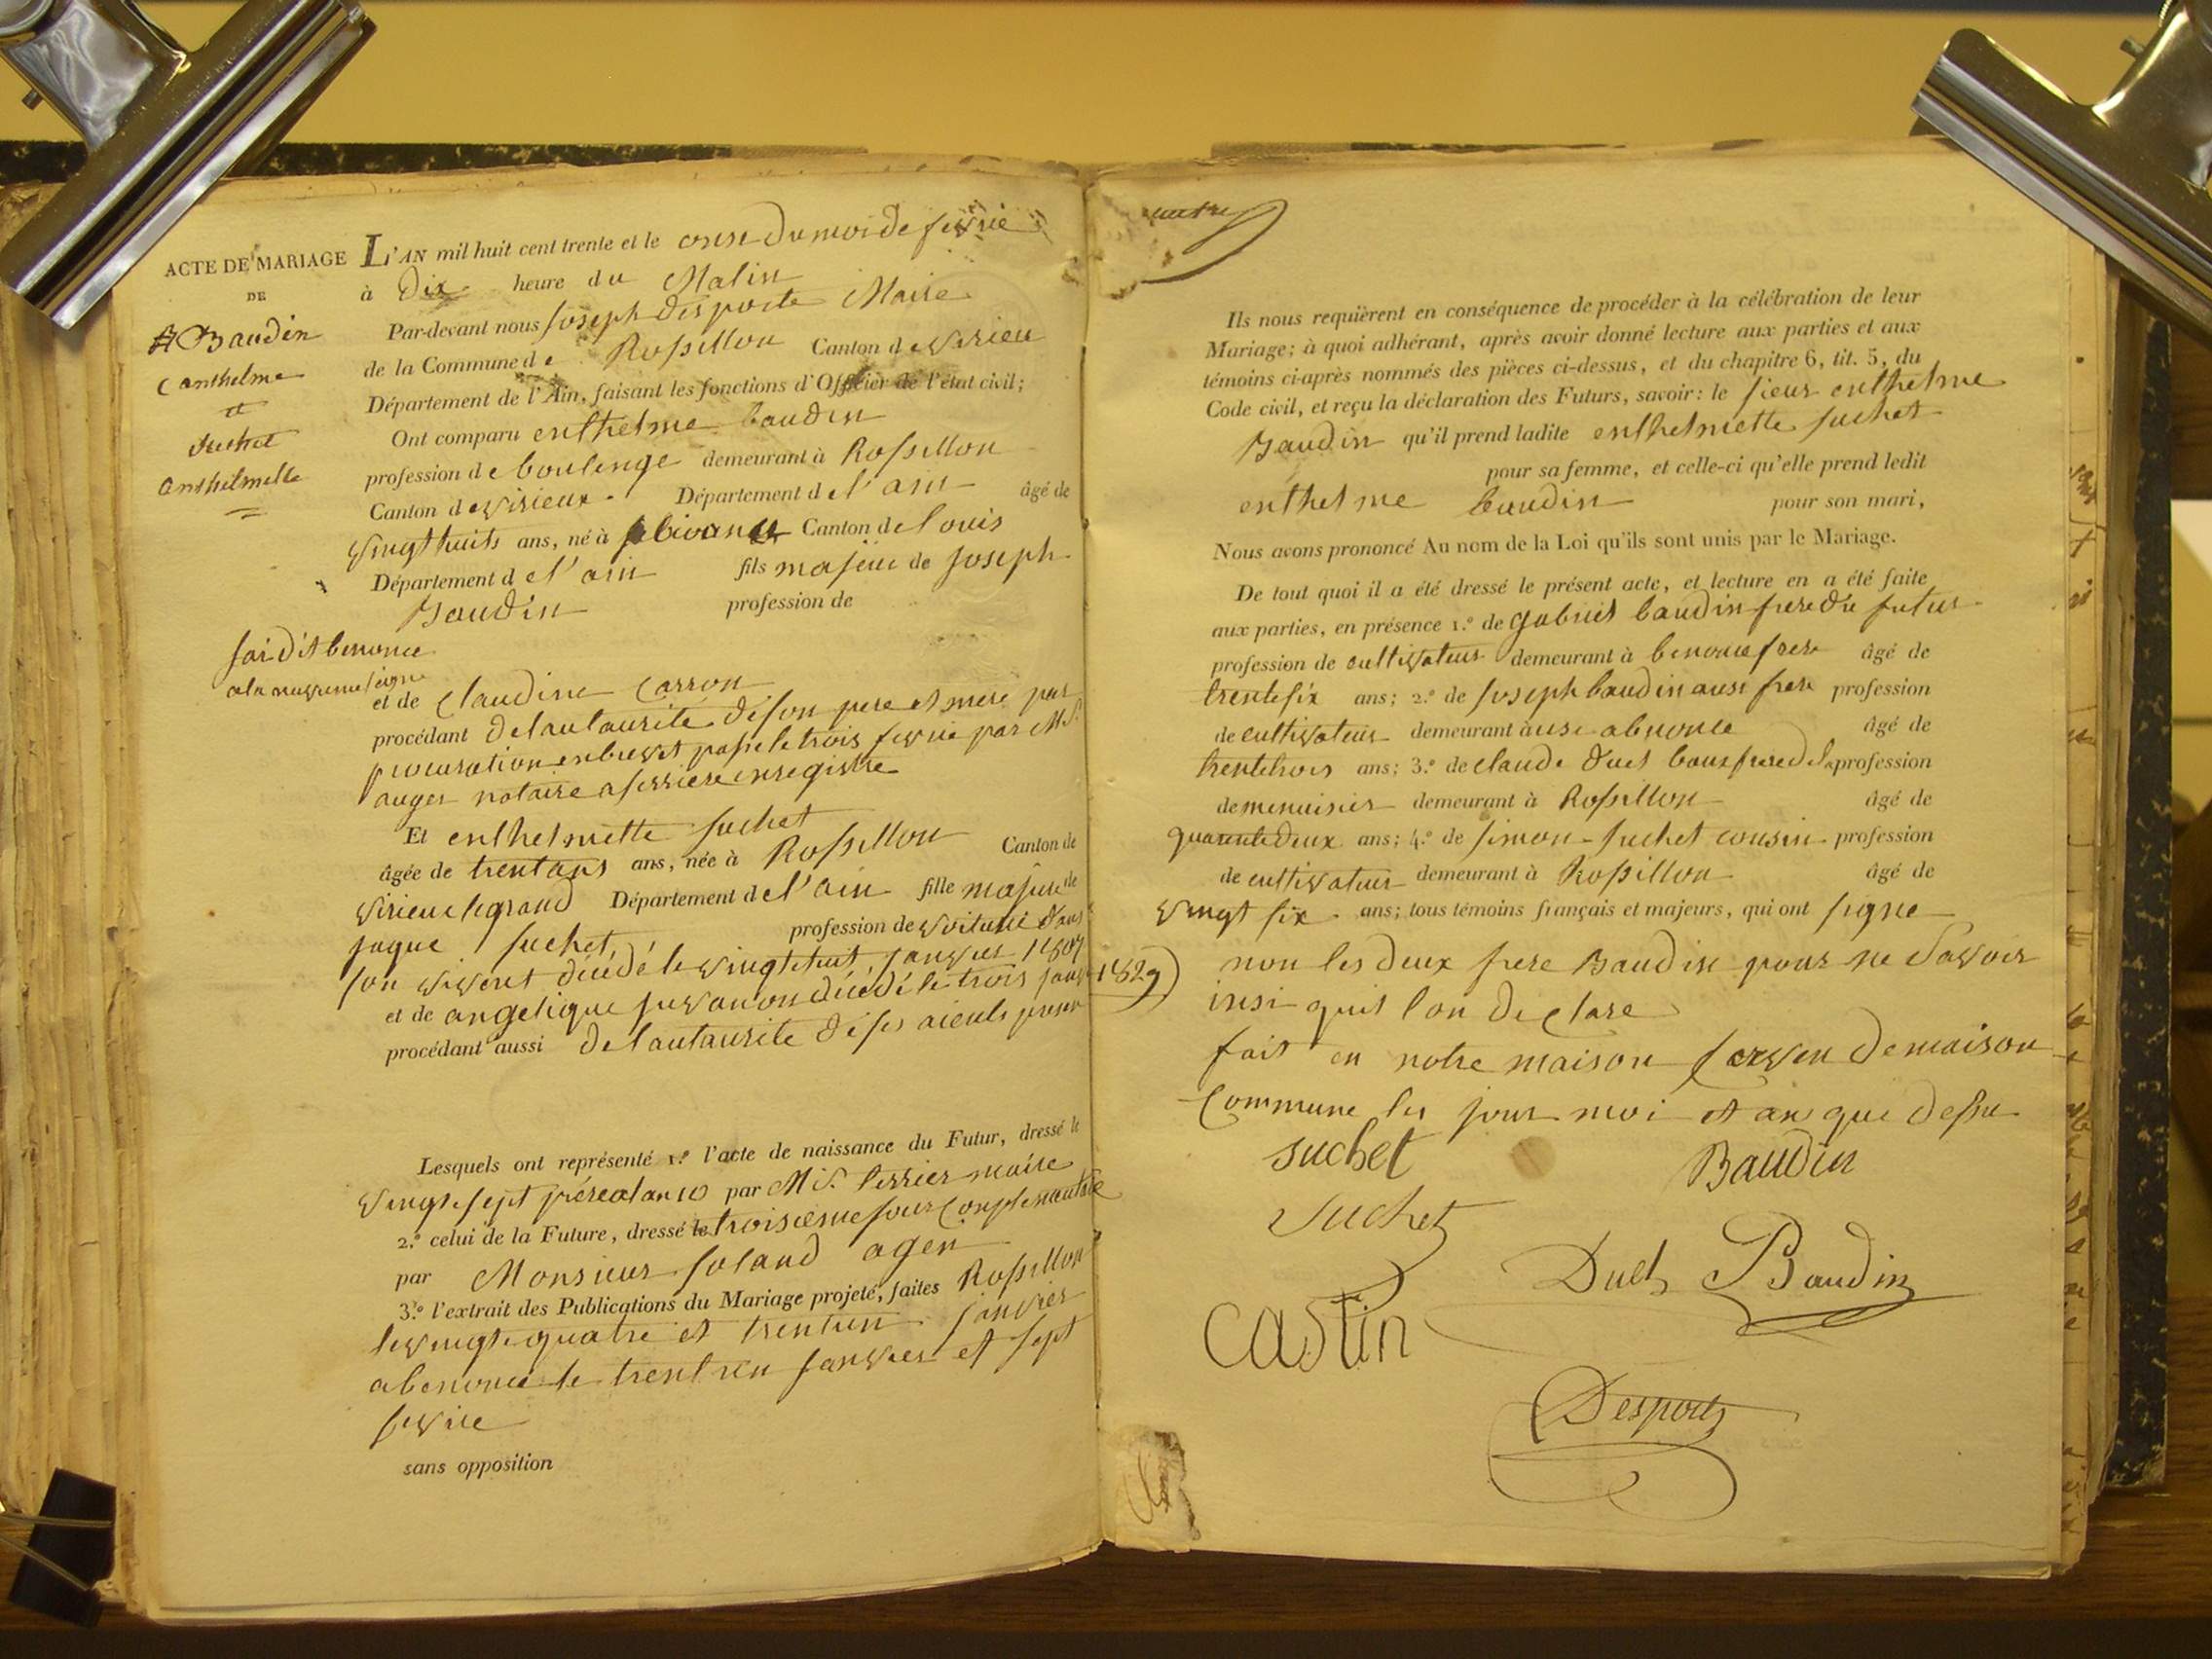 L'AN mil huit cent trente et le onse du moi de fevrié
ACTE DE MARIAGE
DE
Baudin
anthelme
et
Suchet
Anthelmette
à Dix heure du Matin
Par-devant nous joseph desporte Maire
de la Commune de Rossillon Canton de Virieu
Département de l'Ain, faisant les fonctions d'Officier de l'état civil;
Ont comparu enthelme baudin
profession de boulenge demeurant à Rossillon
Canton de virieux Département de l'ain âgé de
vingt huits ans, né à Canton de louis
Département de l'ain fils majeur de joseph
Baudin profession de
fai dit benonce
et de Claudine Carron
procédant de lautaurité de son pere et mere par
procuration enbrevet passé le trois fevrié par Mr
auger notaire a serriere enregistre
Et enthelmette suchet
âgée de trent ans ans, née à Rossillon Canton de
virieu legrand Département de l'ain fille majure de
jaque suchet, profession de voiturié dans
son vivent décédé le vingt huit janvier 1807
et de angelique juvanon décédé le trois janv 1829)
procédant aussi de lautaurite de ses aieuls
Lesquels ont représenté 1.º l'acte de naissance du Futur, dressé le
vingt sept préréal an 10 par Mr. perrier maire
2.º celui de la Future, dressé le troisieme jour Conplemantaire
par Monsieur soland agen
3.º l'extrait des Publications du Mariage projeté, faites Rossillon
le vingt quatre et trentun janvier
a benonce le trentun janvier et sept
fevrie
sans opposition
Ils nous requièrent en conséquence de procéder à la célébration de leur
Mariage; à quoi adhérant, après avoir donné lecture aux parties et aux
témoins ci-après nommés des pièces ci-dessus, et du chapitre 6, tit. 5, du
Code civil, et reçu la déclaration des Futurs, savoir: le sieur enthelme
Baudin qu'il prend ladite enthelmette suchet
pour sa femme, et celle-ci qu'elle prend ledit
enthelme baudin pour son mari,
Nous avons prononcé Au nom de la Loi qu'ils sont unis par le Mariage.
De tout quoi il a été dressé le présent acte, et lecture en a été faite
aux parties, en présence 1.º de gabriel baudin frere du futur
profession de cultivateur demeurant à benonce frere âgé de
trente six ans; 2.º de joseph baudin ausi frere profession
de cultivateur demeurant à ausi abenonce âgé de
trente trois ans; 3.º de claude duet baux frere profession
de menuisier demeurant à Rossillon âgé de
quarente deux ans; 4.º de simon suchet cousin profession
de cultivateur demeurant à Rossillon âgé de
vingt six ans; tous témoins français et majeurs, qui ont signe
non les deux frere Baudin pour ne savoir
insi quil lon declare
fait en notre maison serven de maison
Commune les jour moi et an que dessu
suchet
Baudin
Suchet
Duet
Baudin
castin
Desporte